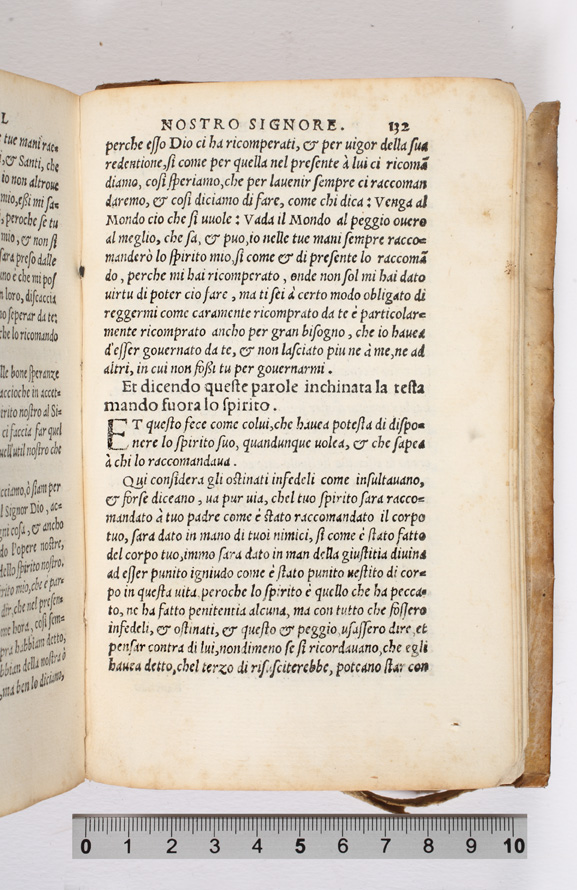 L
e tue mani rac=
i,& Santi, che
io non altroue
mio,eßi mi sa=
, peroche se tu
mio, & non si
sara preso dalle
uno e che mi pos
n loro, discaccia
no seperar da te;
che lo ricomando
lle bone speranze
accioche in accet=
irito nostro al Si=
ci faccia far quel
uell'util nostro che
cciamo,ò siam per
l Signor Dio, ac=
gni cosa, & ancho
do l'opere nostre,
dello spirito nostro.
irito mio,che e par=
dir,che nel presen=
me hora, cosi sem=
pra habbiam detto,
bbian della nostra ò
,ma ben lo diciano,
NOSTRO SIGNORE. 132
perche esso Dio ci ha ricomperati, & per uigor della sua
redentione,si come per quella nel presente à lui ci ricomã
diamo, cosi speriamo,che per lauenir sempre ci raccoman
daremo, & cosi diciamo di fare, come chi dica : Venga al
Mondo cio che si uuole : Vada il Mondo al peggio ouero
al meglio, che sa, & puo,io nelle tue mani sempre racco=
manderò lo spirito mio,si come & di presente lo raccomã
do , perche mi hai ricomperato , onde non sol mi hai dato
uirtu di poter cio fare , ma ti sei à certo modo obligato di
reggermi come caramente ricomprato da te è particolar=
mente ricomprato ancho per gran bisogno , che io hauea
d'esser gouernato da te, & non lasciato piu ne à me,ne ad
altri, in cui non foßi tu per gouernarmi .
Et dicendo queste parole inchinata la testa
mando fuora lo spirito .
ET questo fece come colui,che hauea potesta di dispo=
nere lo spirito suo, quandunque uolea, & che sapea
à chi lo raccomandaua .
Qui considera gli ostinati infedeli come insultauano,
& forse diceano , ua pur uia, chel tuo spirito sara racco=
mandato à tuo padre come è stato raccomandato il corpo
tuo, sara dato in mano di tuoi nimici, si come è stato fatto
del corpo tuo,immo sara dato in man della giustitia diuina
ad esser punito igniudo come è stato punito uestito di cor=
po in questa uita,peroche lo spirito è quello che ha pecca=
to, ne ha fatto penitentia alcuna, ma con tutto che fossero
infedeli, & ostinati, & questo & peggio,usassero dire,et
pensar contra di lui,nondimeno se si ricordauano,che egli
hauea detto,chel terzo di risusciterebbe, poteano star con
0 1 2 3 4 5 6 7 8 9 10